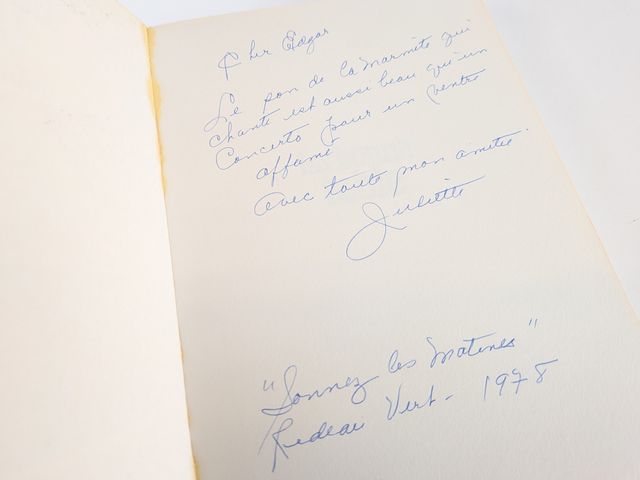 Cher Edgar
Le son de la marmite qui
chante est aussi beau qu'un
Concerto pour un ventre
affamé
Avec toute mon amitié.
Juliette
"Sonnez les Matines"
Rideau Vert - 1978